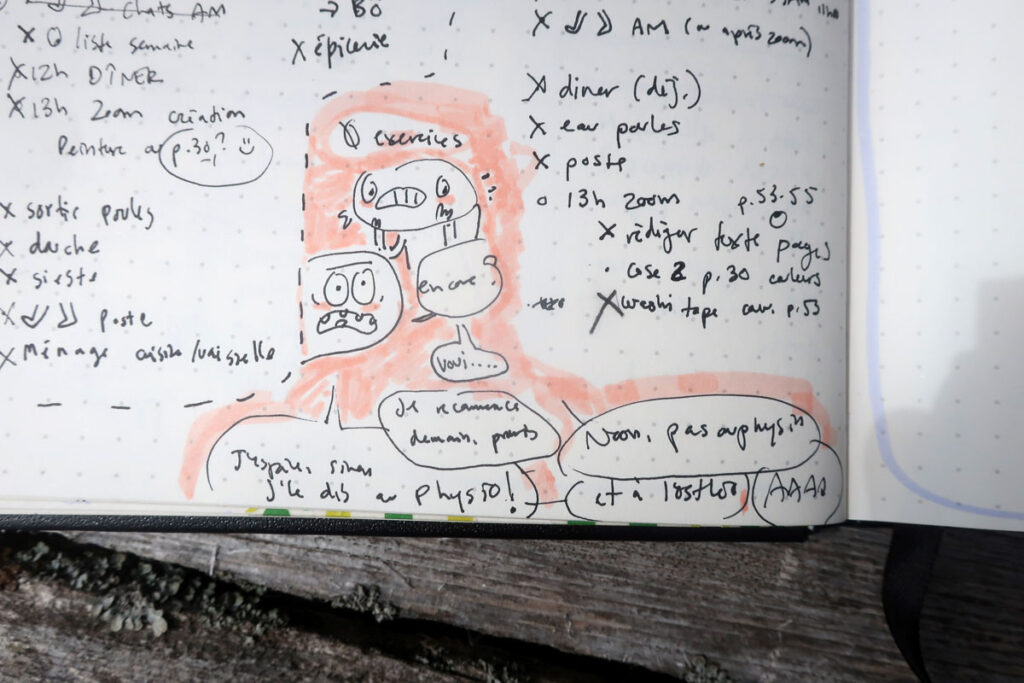 chats AM
O liste semaine
X 12h DÎNER
X 13h Zoom création
Peinture
p.30?
X sortie poules
X douche
X sieste
X poste
X Ménage cuisine/vaisselle
→ BÔ
X épicerie
exercices
encore?
voui....
Je recommence
demain, promis
J'espère, sinon
j'le dis au physio!
Noon, pas au physio
et à l'ostéo
AAAA
X AM (ou après zoom)
X diner (déj.)
X eau poules
X poste
o 13h zoom
p.53-55
X rédiger texte pages
· case 2 p.30
X washi tape p.53